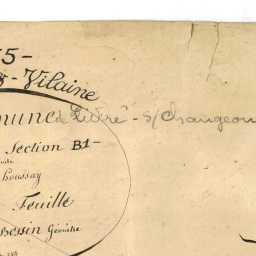 5-
- Vilaine
mune de Livré - s/ Changeon
Section B1-
houssay
Feuille
Bessin Géomètre